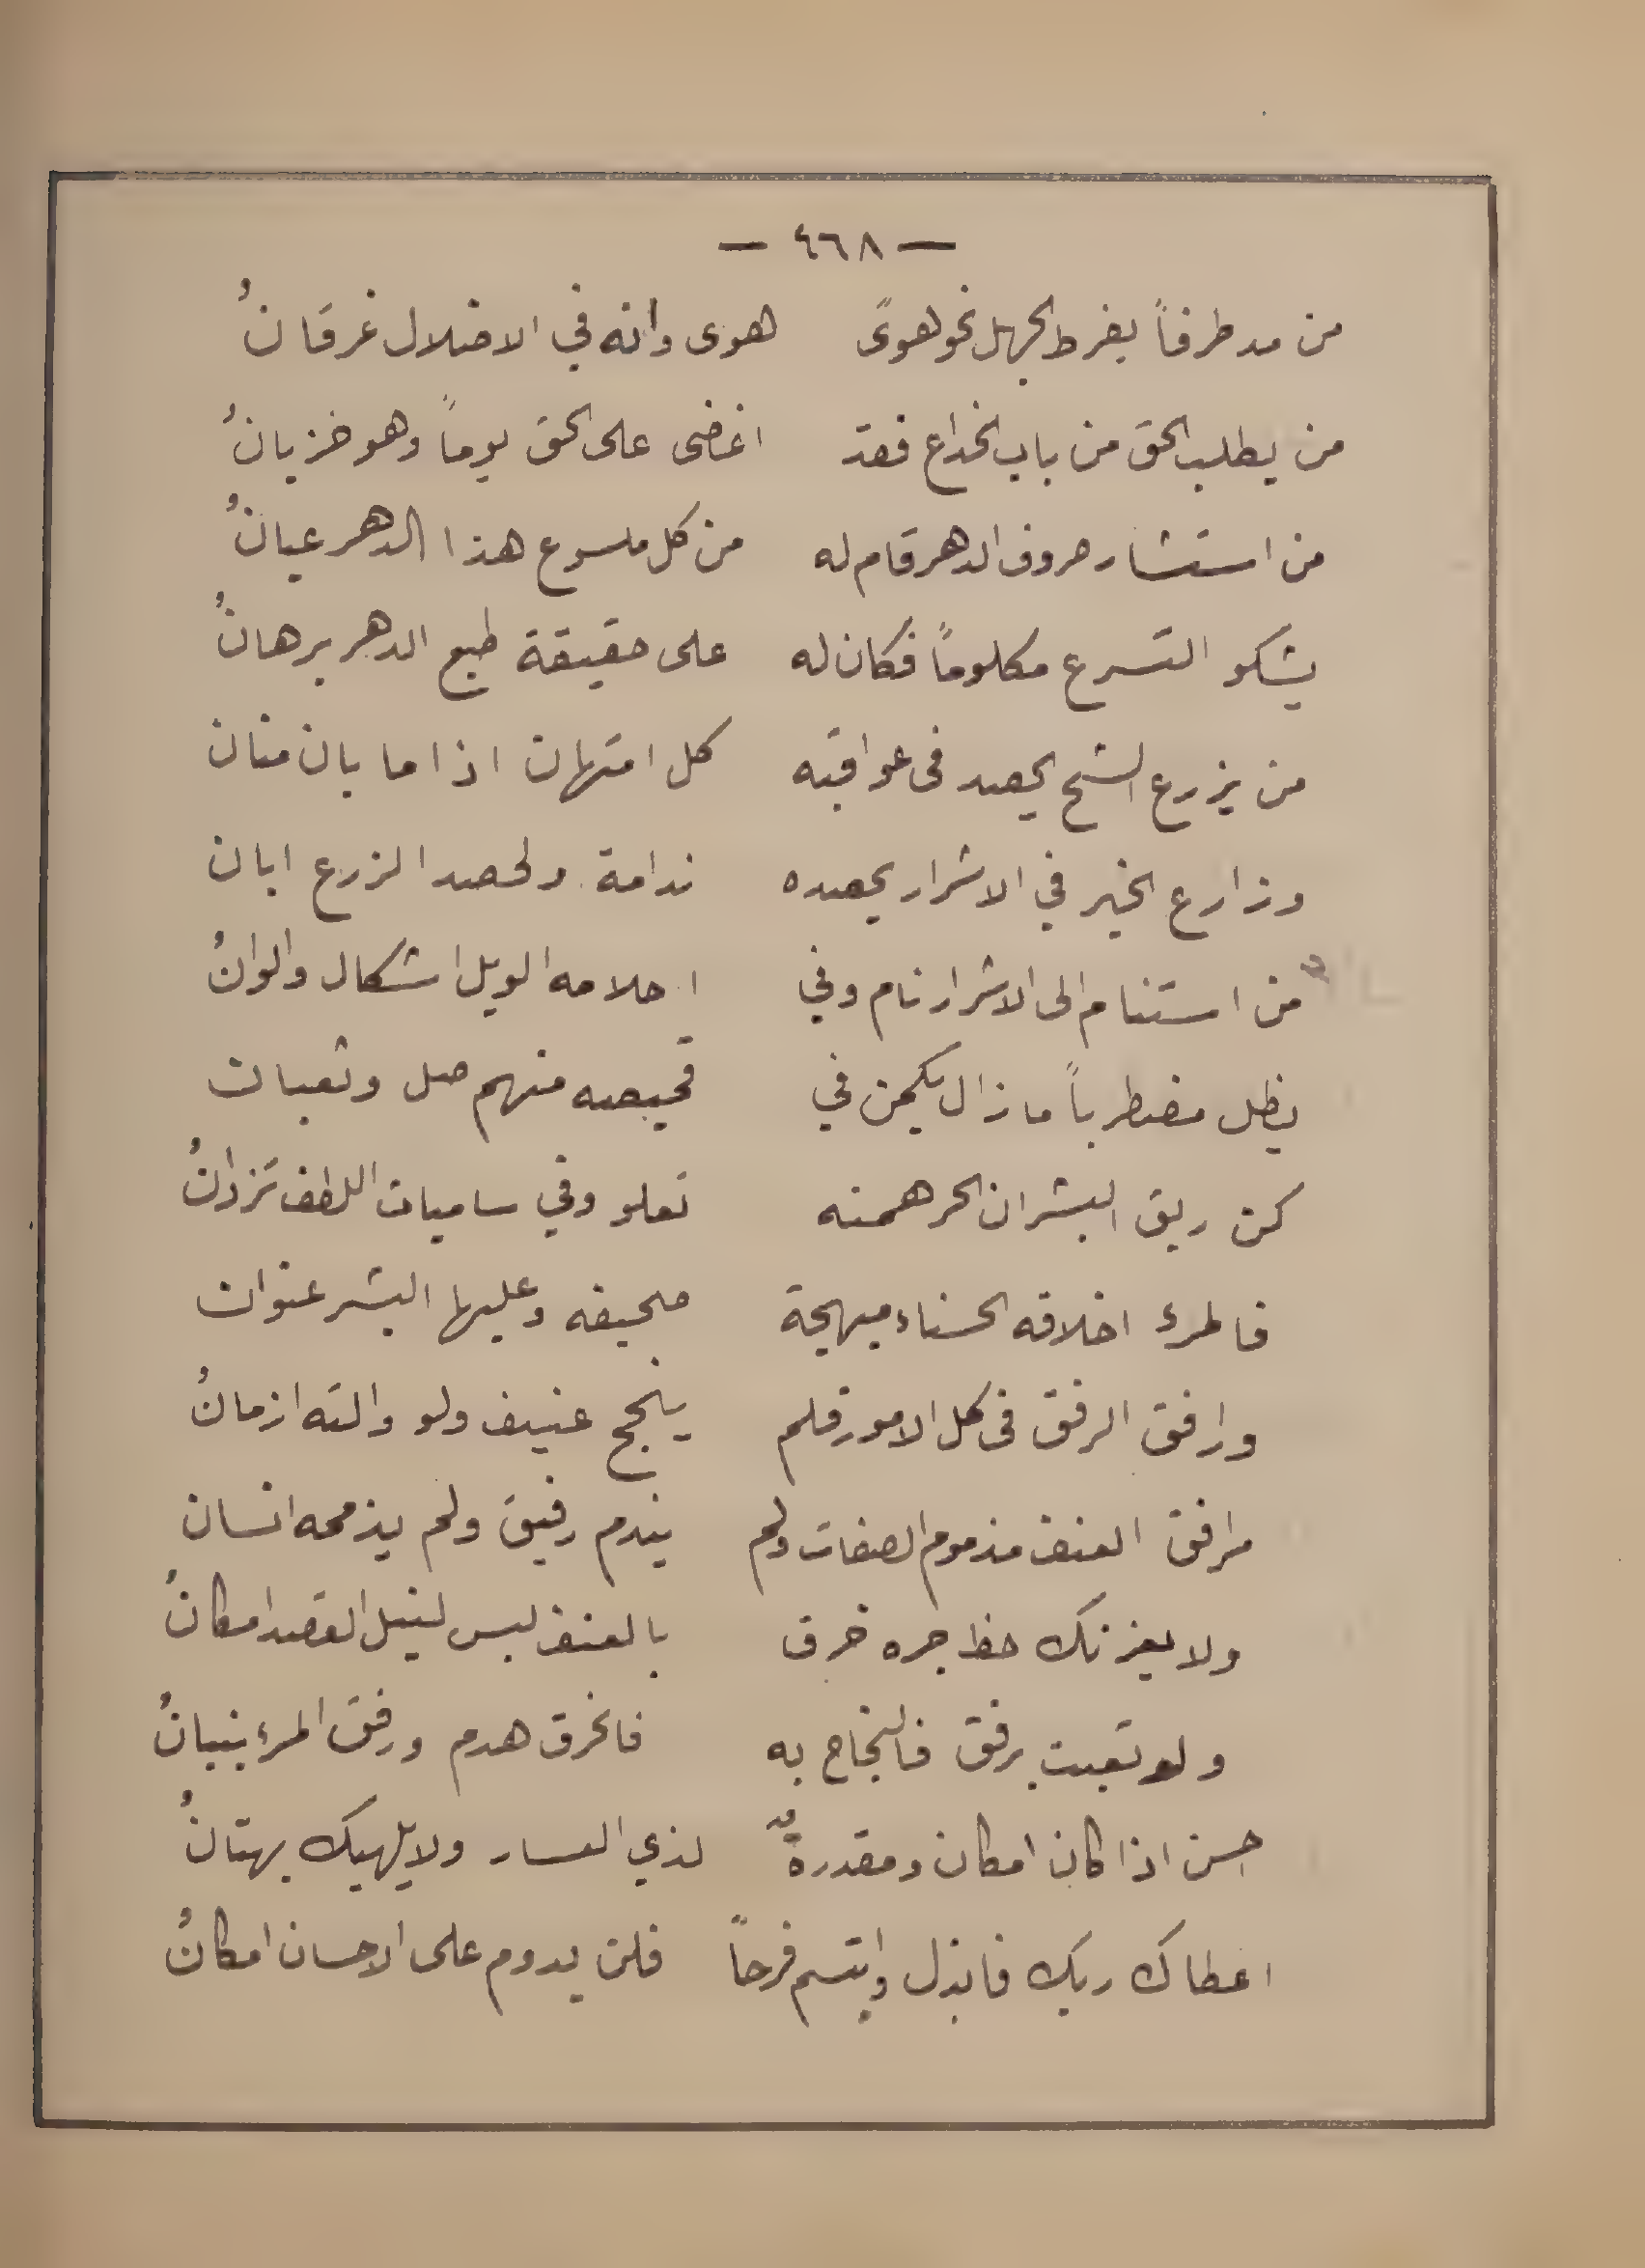 — ٤٦٨ —
من مد طرفاً بفرط الجهل نحو هوىً هوى وانه في الاضلال غرقانُ
من يطلب الحق من باب الخداع فقد اغضى على الحق يوماً وهو خزيانُ
من استشار صروف الدهر قام له من كل ملسوع هذا الدهر عيانُ
يشكو التسرع مكلوماً فكان له على حقيقة طبع الدهر برهانُ
من يزرع الشح يحصد فى عواقبه كل امتهان اذا ما بان منان
وزارع الخير في الاشرار يحصده ندامة ولحصد الزرع ابان
من استنام الى الاشرار نام وفي احلامه الويل اشكال والوانُ
يظل مضطرباً ما زال يكمن في قميصه منهم صل وثعبان
كن ريق البشر ان الحر همته تعلو وفي ساميات اللطف تزدانُ
فالمرء اخلاقه الحسناء مبهجة صحيفه وعليها البشر عنوان
ورافق الرفق فى كل الامور فلم ينجح عنيف ولو والته ازمانُ
مرافق العنف مذموم الصفات ولم يندم رفيق ولم يذممه انسان
ولا يغرنك حظ جره خرق بالعنف ليس لنيل القصد امكانُ
ولو تعبت برفق فالنجاح به فالخرق هدم ورفق المرء بنيانُ
احسن اذا كان امكان ومقدرة لذي العسار ولا يلهيك بهتانُ
اعطاك ربك فابذل وابتسم فرحاً فلن يدوم على الاحسان امكانُ